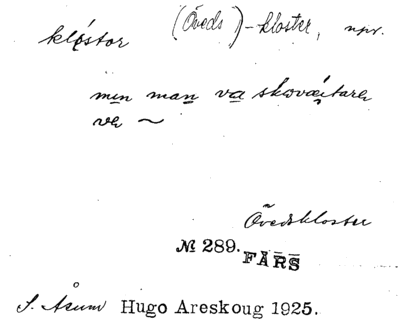 klo̜stor (Öveds)-kloster, npr.
min man va skovæ̜itare
ve ~
Övedskloster
№ 289. FÄRS
S. Åsum Hugo Areskoug 1925.